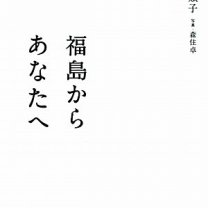 子 写真 森住卓
福島から
あなたへ